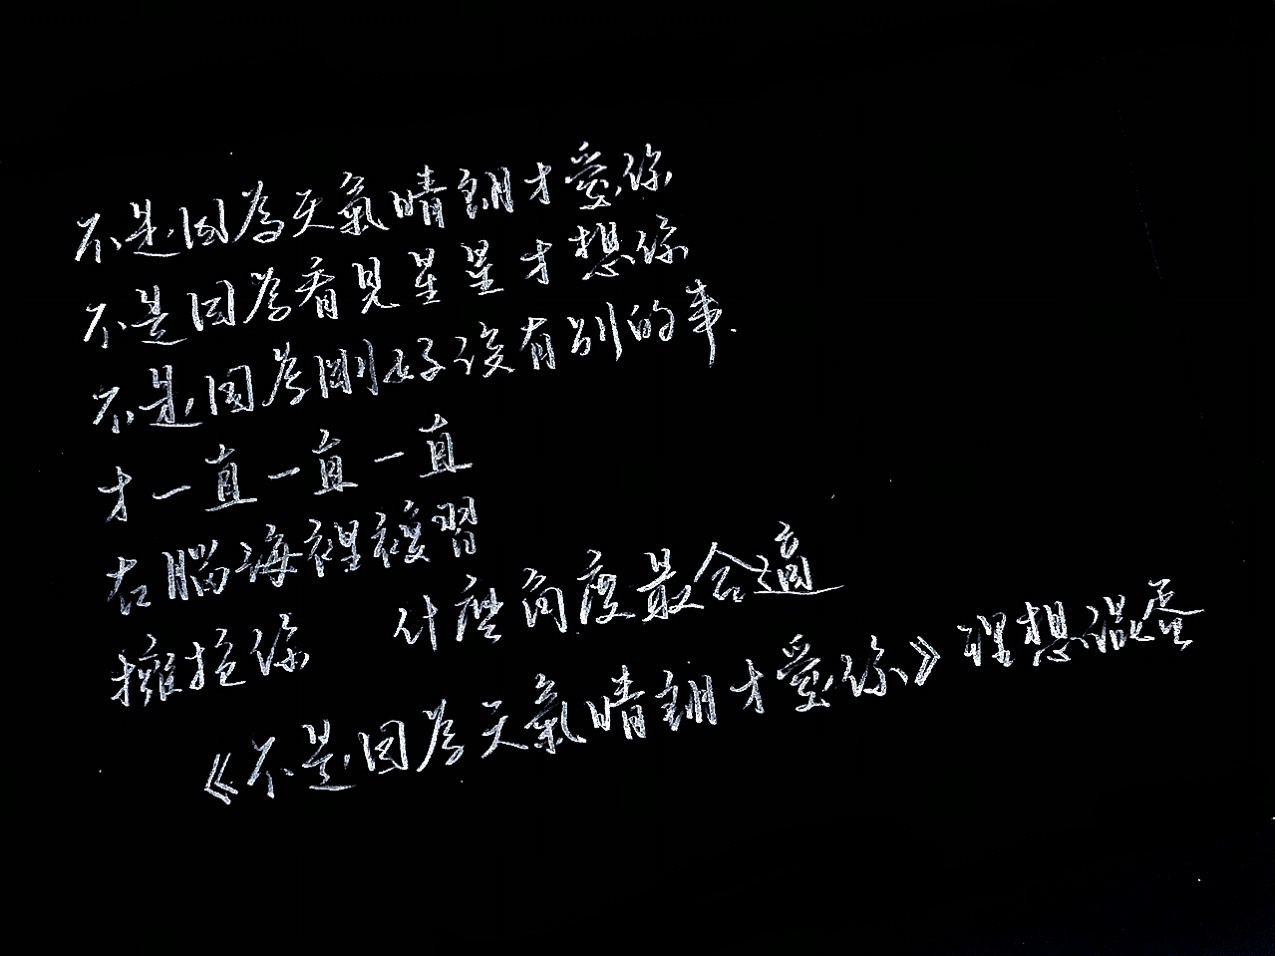 不是因為天氣晴朗才愛你
不是因為看見星星才想你
不是因為剛好沒有別的事.
才一直一直一直
在腦海裡複習
擁抱你　什麼角度最合適
《不是因為天氣晴朗才愛你》理想混蛋